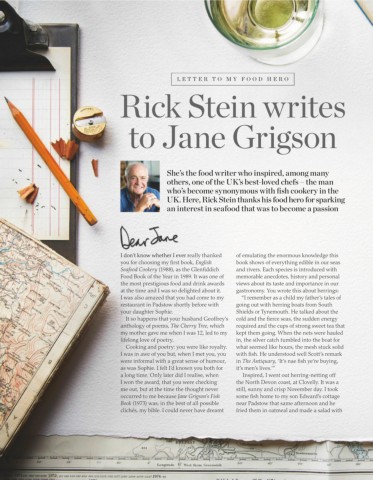 LETTER TO MY FOOD HERO
Rick Stein writes
to Jane Grigson
She's the food writer who inspired, among many
others, one of the UK's best-loved chefs – the man
who's become synonymous with fish cookery in the
UK. Here, Rick Stein thanks his food hero for sparking
an interest in seafood that was to become a passion
Dear Jane
I don't know whether I ever really thanked
you for choosing my first book, English
Seafood Cookery (1988), as the Glenfiddich
Food Book of the Year in 1989. It was one of
the most prestigious food and drink awards
at the time and I was so delighted about it.
I was also amazed that you had come to my
restaurant in Padstow shortly before with
your daughter Sophie.
It so happens that your husband Geoffrey's
anthology of poems, The Cherry Tree, which
my mother gave me when I was 12, led to my
lifelong love of poetry.
Cooking and poetry: you were like royalty.
I was in awe of you but, when I met you, you
were informal with a great sense of humour,
as was Sophie. I felt I'd known you both for
a long time. Only later did I realise, when
I won the award, that you were checking
me out, but at the time the thought never
occurred to me because Jane Grigson's Fish
Book (1973) was, in the best of all possible
clichés, my bible. I could never have dreamt
of emulating the enormous knowledge this
book shows of everything edible in our seas
and rivers. Each species is introduced with
memorable anecdotes, history and personal
views about its taste and importance in our
gastronomy. You wrote this about herrings:
"I remember as a child my father's tales of
going out with herring boats from South
Shields or Tynemouth. He talked about the
cold and the fierce seas, the sudden energy
required and the cups of strong sweet tea that
kept them going. When the nets were hauled
in, the silver catch tumbled into the boat for
what seemed like hours, the mesh stuck solid
with fish. He understood well Scott's remark
in The Antiquary, 'It's nae fish ye're buying,
it's men's lives.'"
Inspired, I went out herring-netting off
the North Devon coast, at Clovelly. It was a
still, sunny and crisp November day. I took
some fish home to my son Edward's cottage
near Padstow that same afternoon and he
fried them in oatmeal and made a salad with